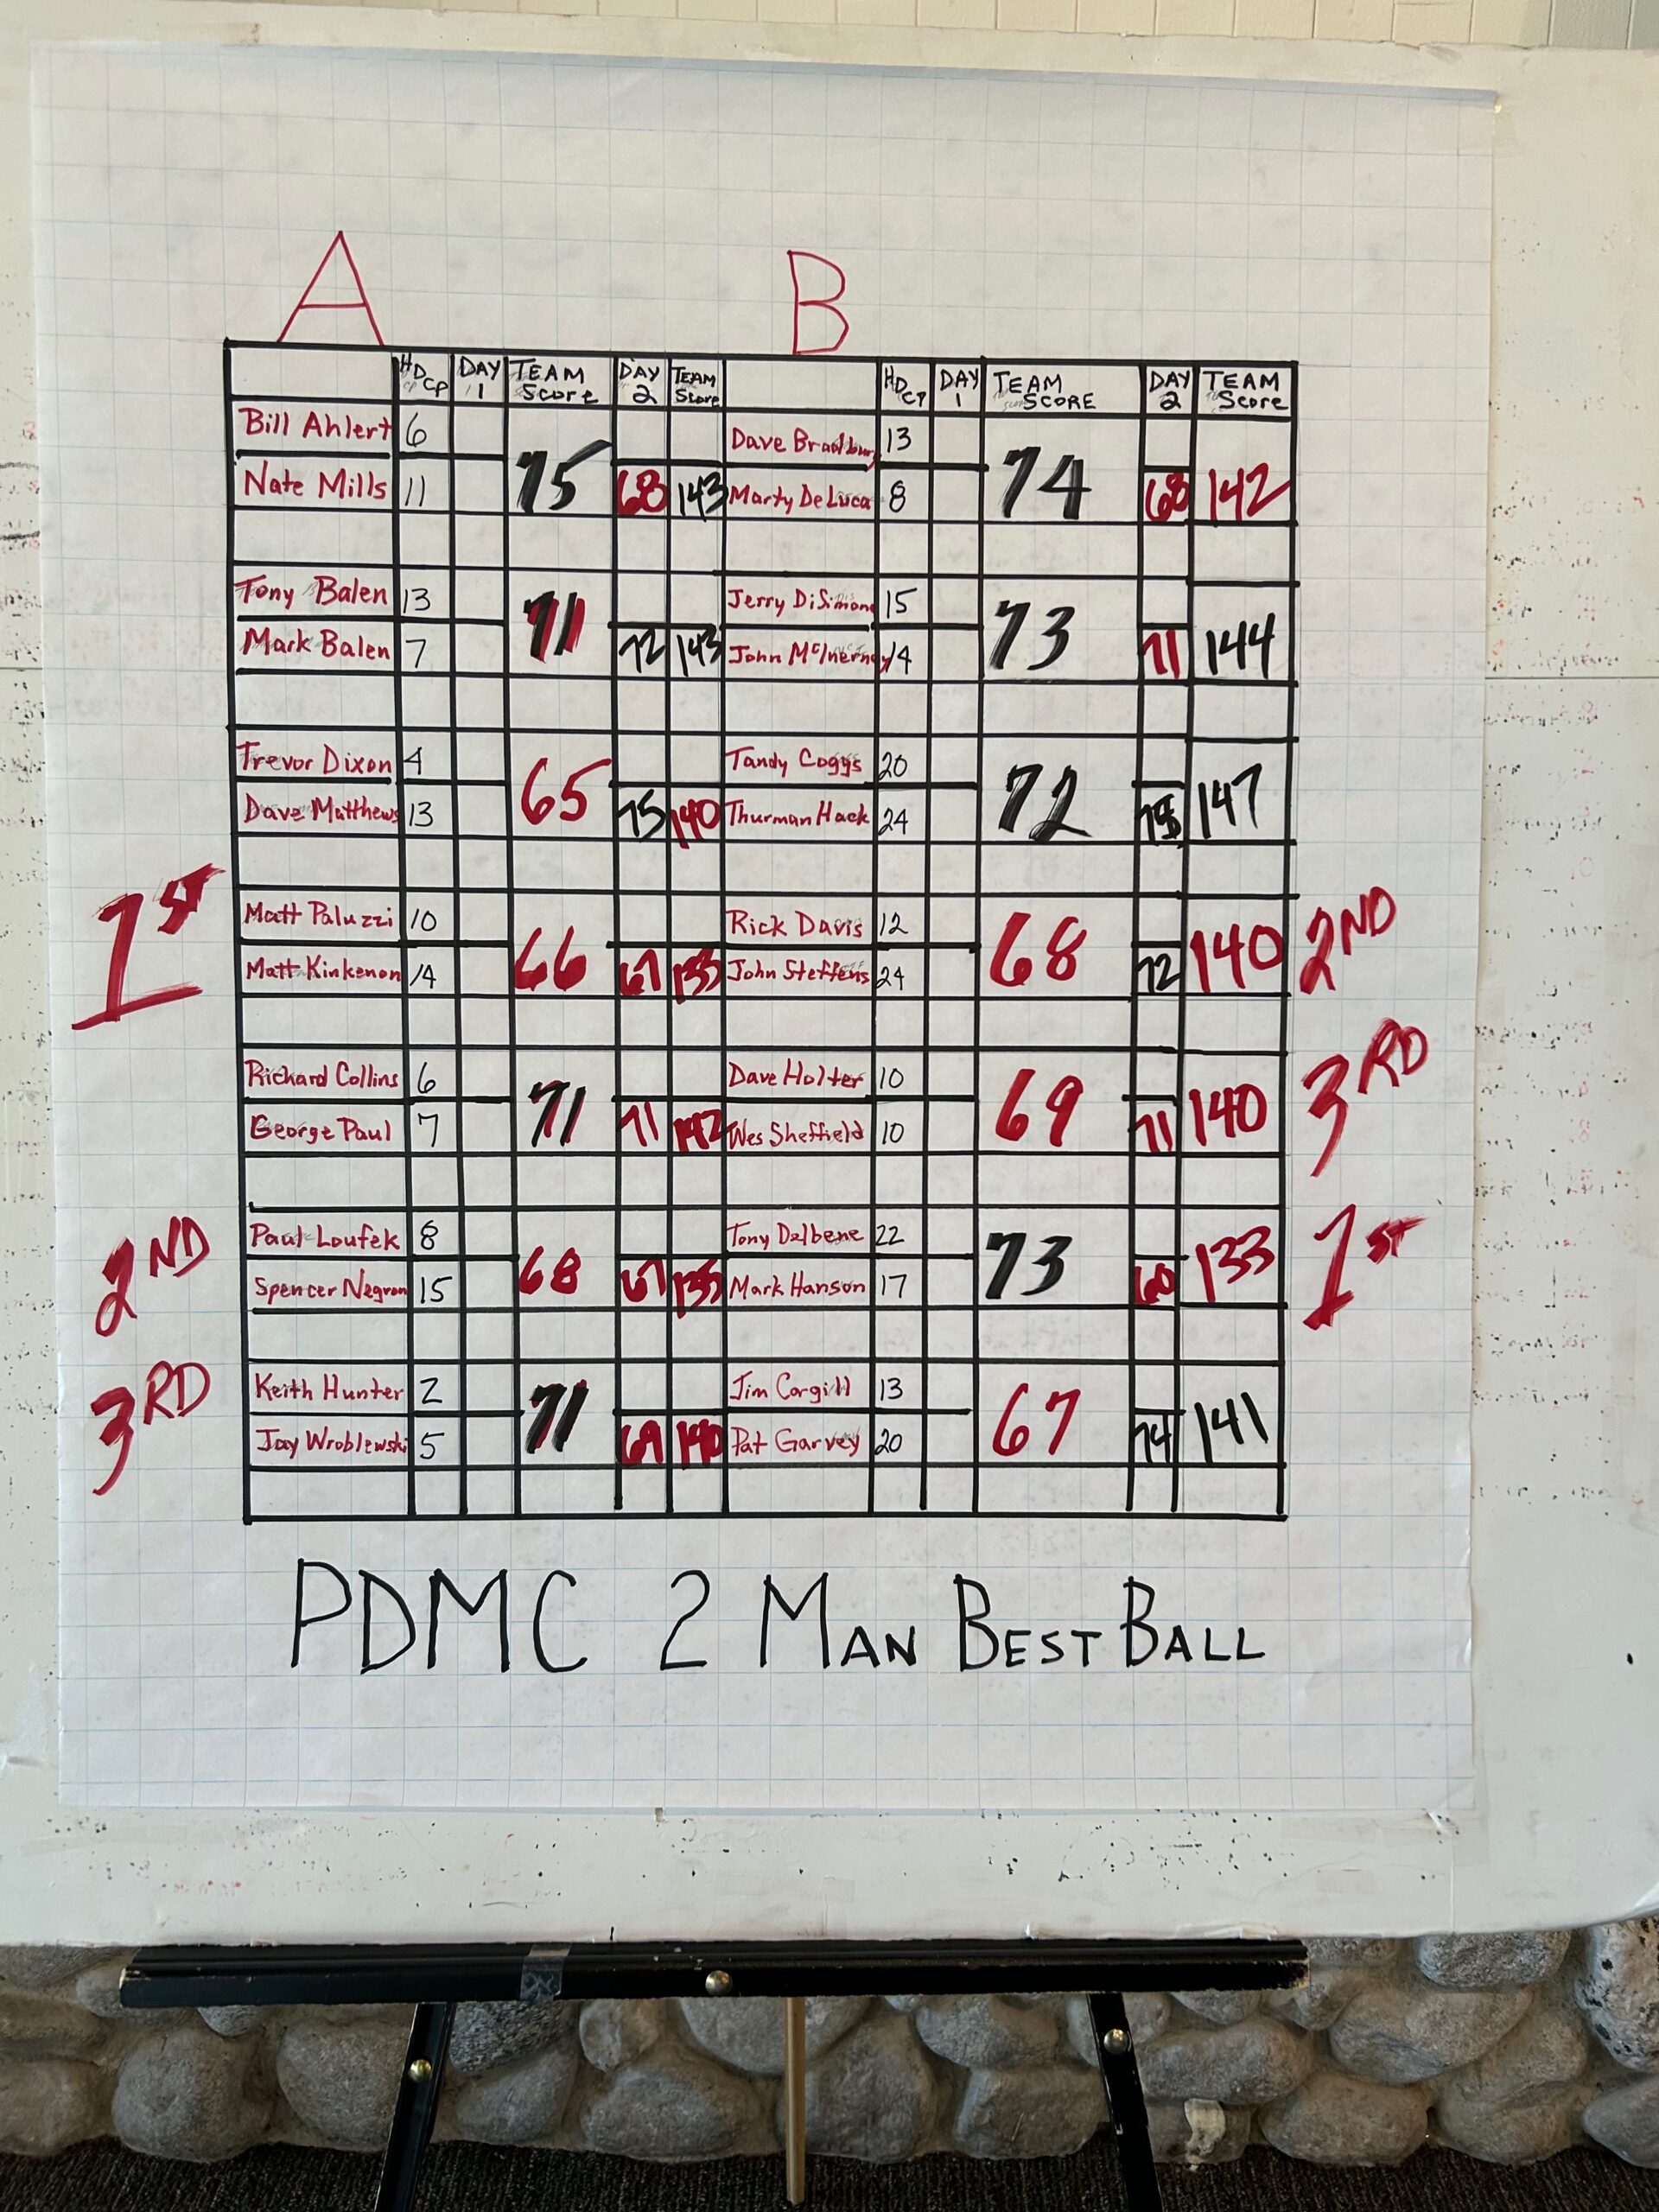 A B
HDCP DAY 1 TEAM Score DAY 2 TEAM Score HDCP DAY 1 TEAM SCORE DAY 2 TEAM Score
Bill Ahlert 6 75 Dave Bradbury 13 74
Nate Mills 11 68 143 Marty DeLuca 8 68 142
Tony Balen 13 71 Jerry DiSimone 15 73
Mark Balen 7 72 143 John McInerney 14 71 144
Trevor Dixon 4 65 Tandy Coggs 20 72
Dave Matthews 13 75 140 Thurman Hack 24 75 147
1ST Matt Paluzzi 10 66 Rick Davis 12 68 2ND
Matt Kinkenon 14 67 133 John Steffens 24 72 140
Richard Collins 6 71 Dave Holter 10 69 3RD
George Paul 7 71 142 Wes Sheffield 10 71 140
2ND Paul Loufek 8 68 Tony Delbene 22 73 1ST
Spencer Negron 15 67 135 Mark Hanson 17 60 133
3RD Keith Hunter 2 71 Jim Cargill 13 67
Jay Wroblewski 5 69 140 Pat Garvey 20 74 141
PDMC 2 MAN BEST BALL